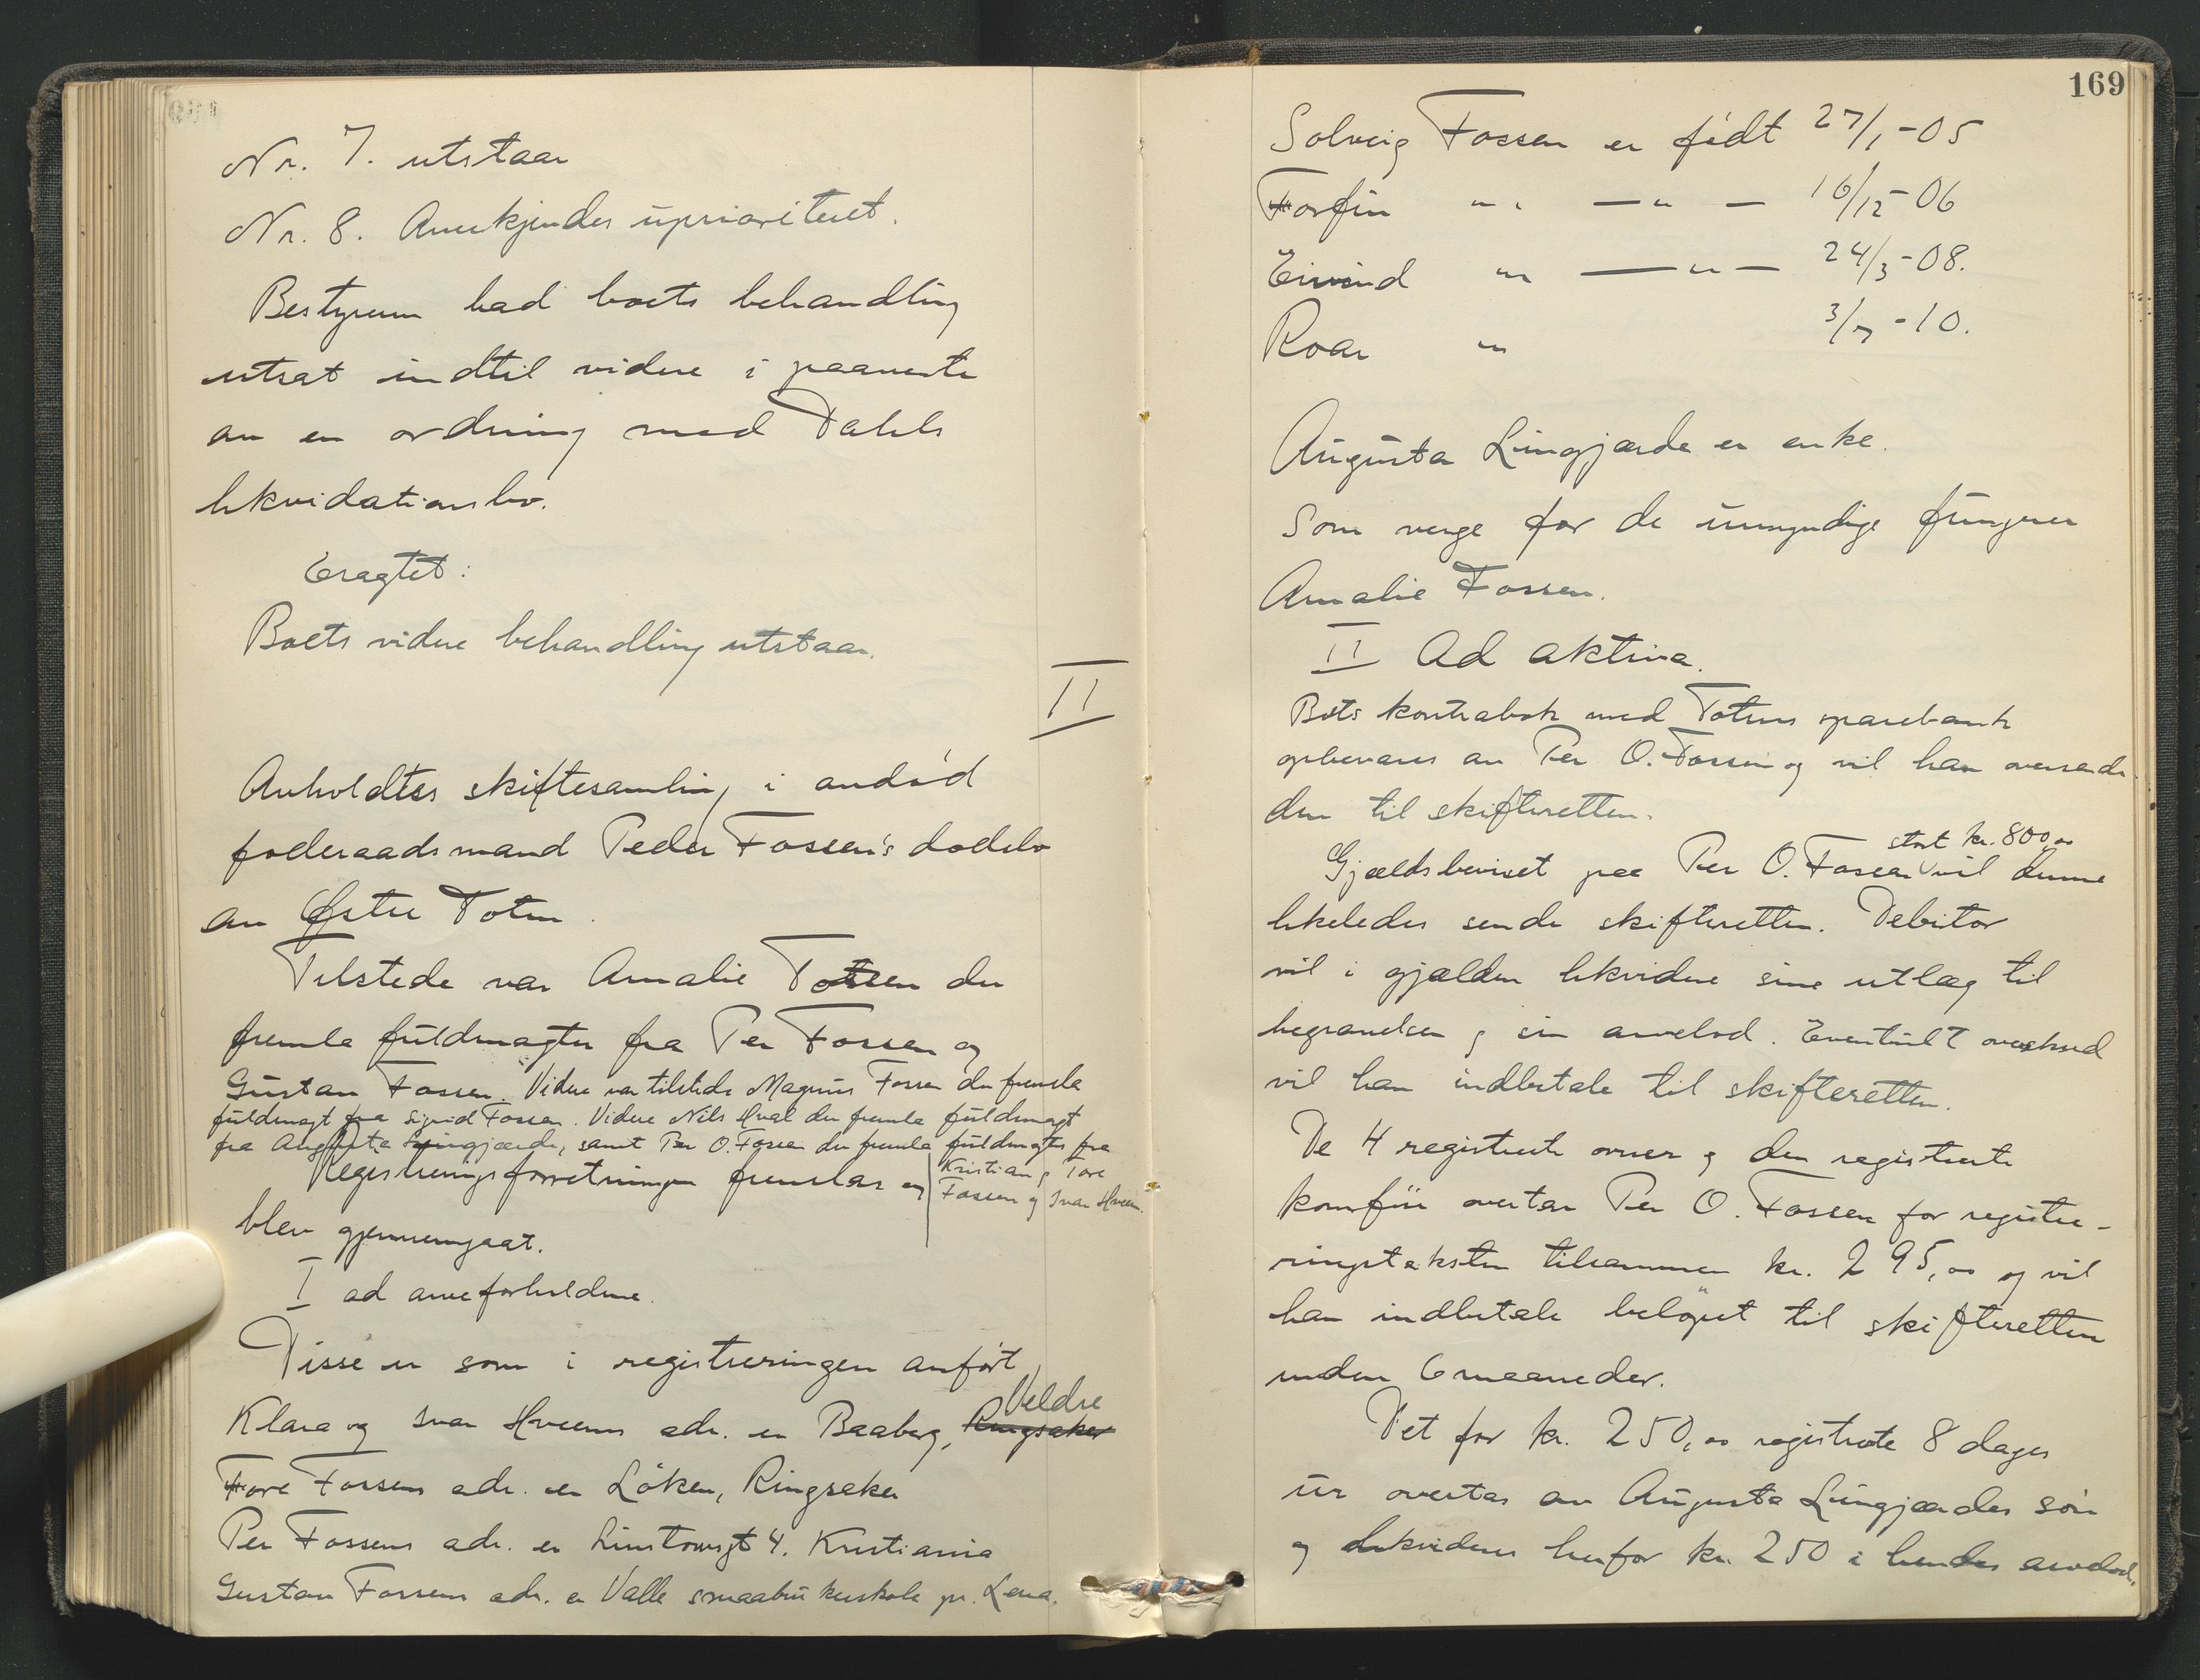 Nr. 7. utstaar
Nr. 8. Anerkjendes uprioritert.
Bestyreren bad boets behandling
utsat indtil videre i paavente
av en ordning med Dahls
likvidationsbo.
Eragtet:
Boets videre behandling utstaar.
II
Anholdtes skiftesamling i avdød
føderaadsmand Peder Fossen's dødsbo
av Østre Toten.
Tilstede var Amalie Fossen der
fremla fuldmagter fra Per Fossen og
Gustav Fossen. Videre var tilstede Magnus Fossen der fremla
fuldmagt fra Sigrid Fossen. Videre Nils Hval der fremla fuldmagt
fra Augusta Lingjærde, samt Per O. Fossen der fremla fuldmagter fra
Kristian og Tore
Fossen og Ivar Hveem.
Registreringsforretningen fremlaa og
blev gjennemgaat.
I ad arveforholdene.
Disse er som i registreringen anført
Klara og Ivar Hveems adr. er Baaberg, Ringsaker Veldre
Tore Fossens adr. er Löken, Ringsaker
Per Fossens adr. er Linstowsgt 4. Kristiania
Gustav Fossens adr. er Valle smaabrukerskole pr. Lena.
169
Solveig Fossen er født 27/1-05
Torfin " — " — 16/12-06
Eivind " — " — 24/3-08.
Roar " 3/7-10.
Augusta Lingjærde er enke.
Som verge for de umyndige fungerer
Amalie Fossen.
II Ad aktiva.
Bets kontrabok med Totens sparebank
opbevares av Per O. Fossen og vil han oversende
den til skifteretten.
Gjældsbeviset paa Per O. Fossen stort kr. 800,00 vil denne
likeledes sende skifteretten. Debitor
vil i gjælden likvidere sine utlæg til
begravelsen og sin arvelod. Eventuelt overskud
vil han indbetale til skifteretten.
De 4 registrerte ovner og den registrerte
komfür overtar Per O. Fossen for registre-
ringstaksten tilsammen kr. 295,00 og vil
han indbetale beløpet til skifteretten
inden 6 maaneder.
Det for kr. 250,00 registrerte 8 dages
ur overtas av Augusta Lingjærdes sön
og likvideres herfor kr. 250 i hendes arvelod.